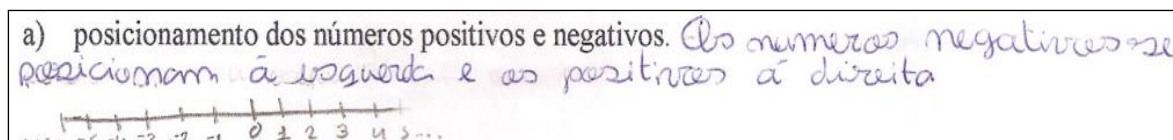 a) posicionamento dos números positivos e negativos. Os numeros negativos se
posicionam á esquerda e os positivos á direita
-3 -2 -1 0 1 2 3 4 5...